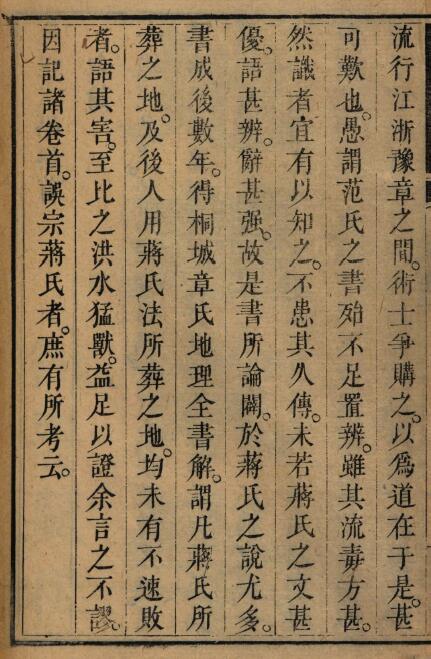 流行江浙豫章之間。術士爭購之。以爲道在于是。甚
可歎也。愚謂范氏之書殆不足置辨。雖其流毒方甚。
然識者宜有以知之。不患其久傳。未若蔣氏之文甚
優。語甚辨。辭甚强。故是書所論闢。於蔣氏之說尤多。
書成後數年。得桐城章氏地理全書解。謂凡蔣氏所
葬之地。及後人用蔣氏法所葬之地。均未有不速敗
者。語其害。至比之洪水猛獸。益足以證余言之不謬。
因記諸卷首。誤宗蔣氏者。庶有所考云。